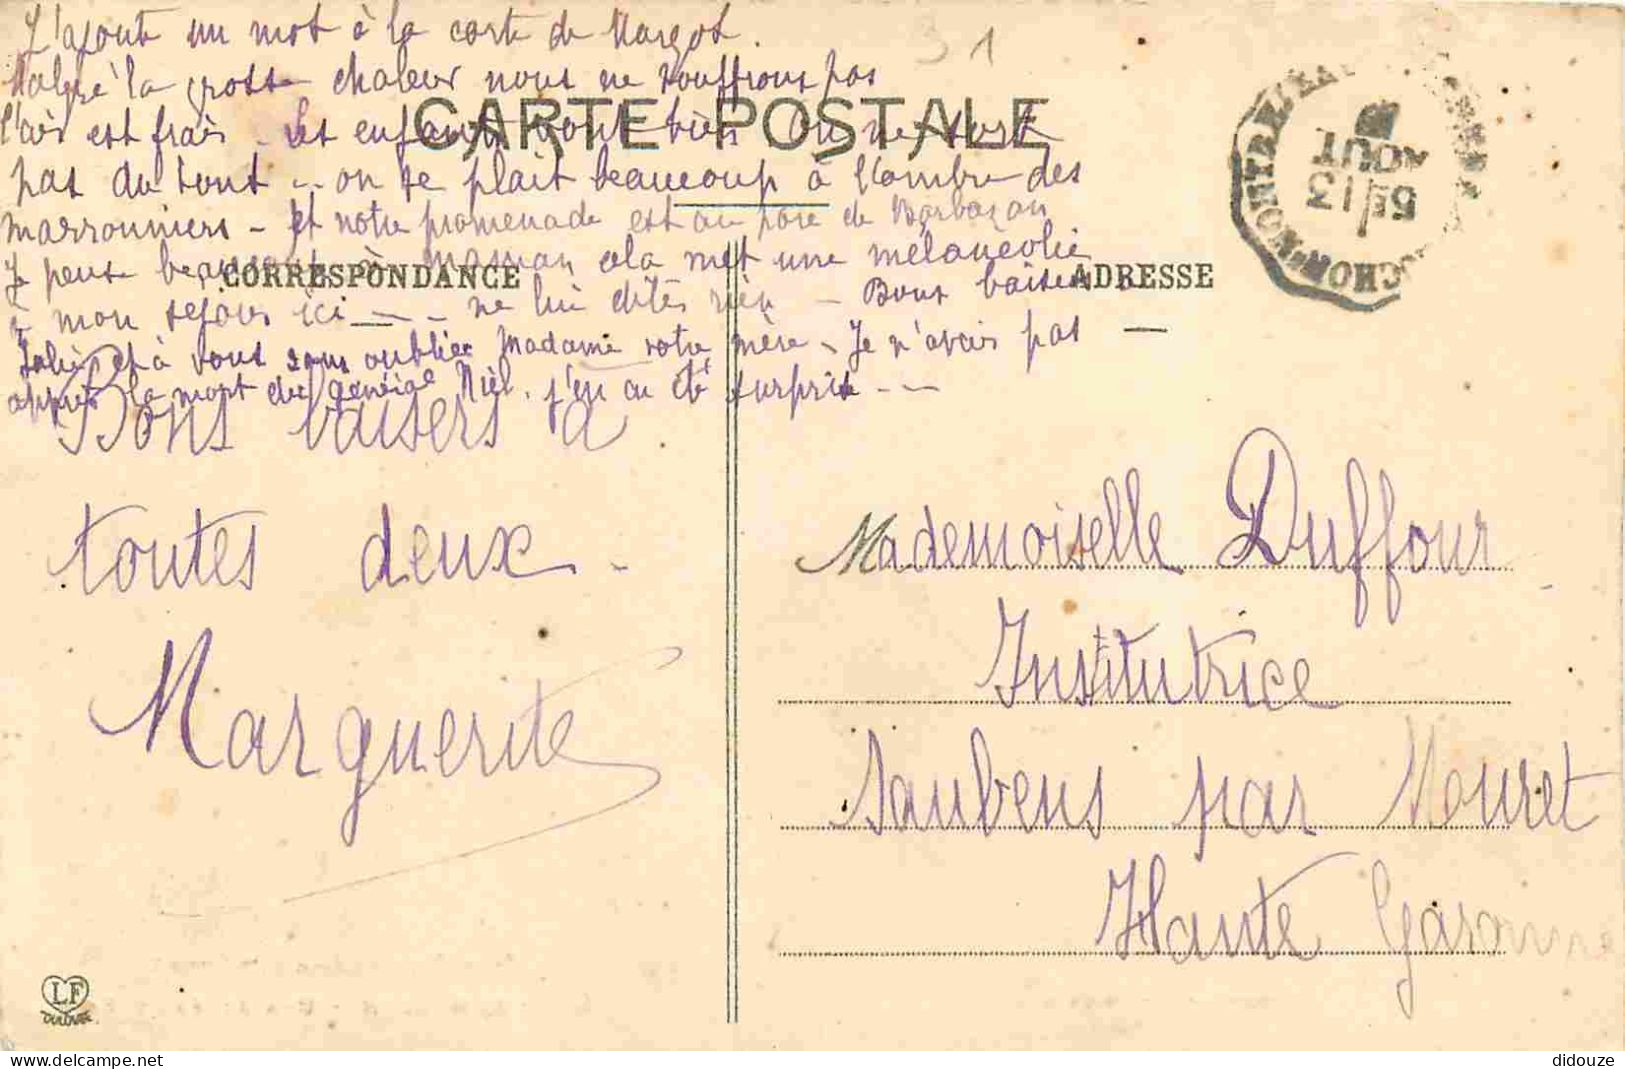 J'ajoute un mot à la carte de Margot.
31
Malgré la grosse chaleur nous ne souffrons pas
l'air est frais - Les enfants vont bien On ne sort
CARTE POSTALE
pas du tout - on se plait beaucoup à l'ombre des
marronniers - Et notre promenade est au parc de Barbazan
Je pense beaucoup à maman cela met une mélancolie
CORRESPONDANCE
ADRESSE
à mon sejour ici - ne lui dites rien - Bons baisers à
Julie et à vous sans oublier Madame votre mère - Je n'avais pas
appris la mort du général Niel. j'en ai été surprise -
Bons baisers à
toutes deux -
Marguerite
MONTRÉJEAU
LUCHON
5 13
AOUT
Mademoiselle Duffour
Institutrice
Saubens par Mouret
Haute Garonne
LF
didouze - delcampe.net